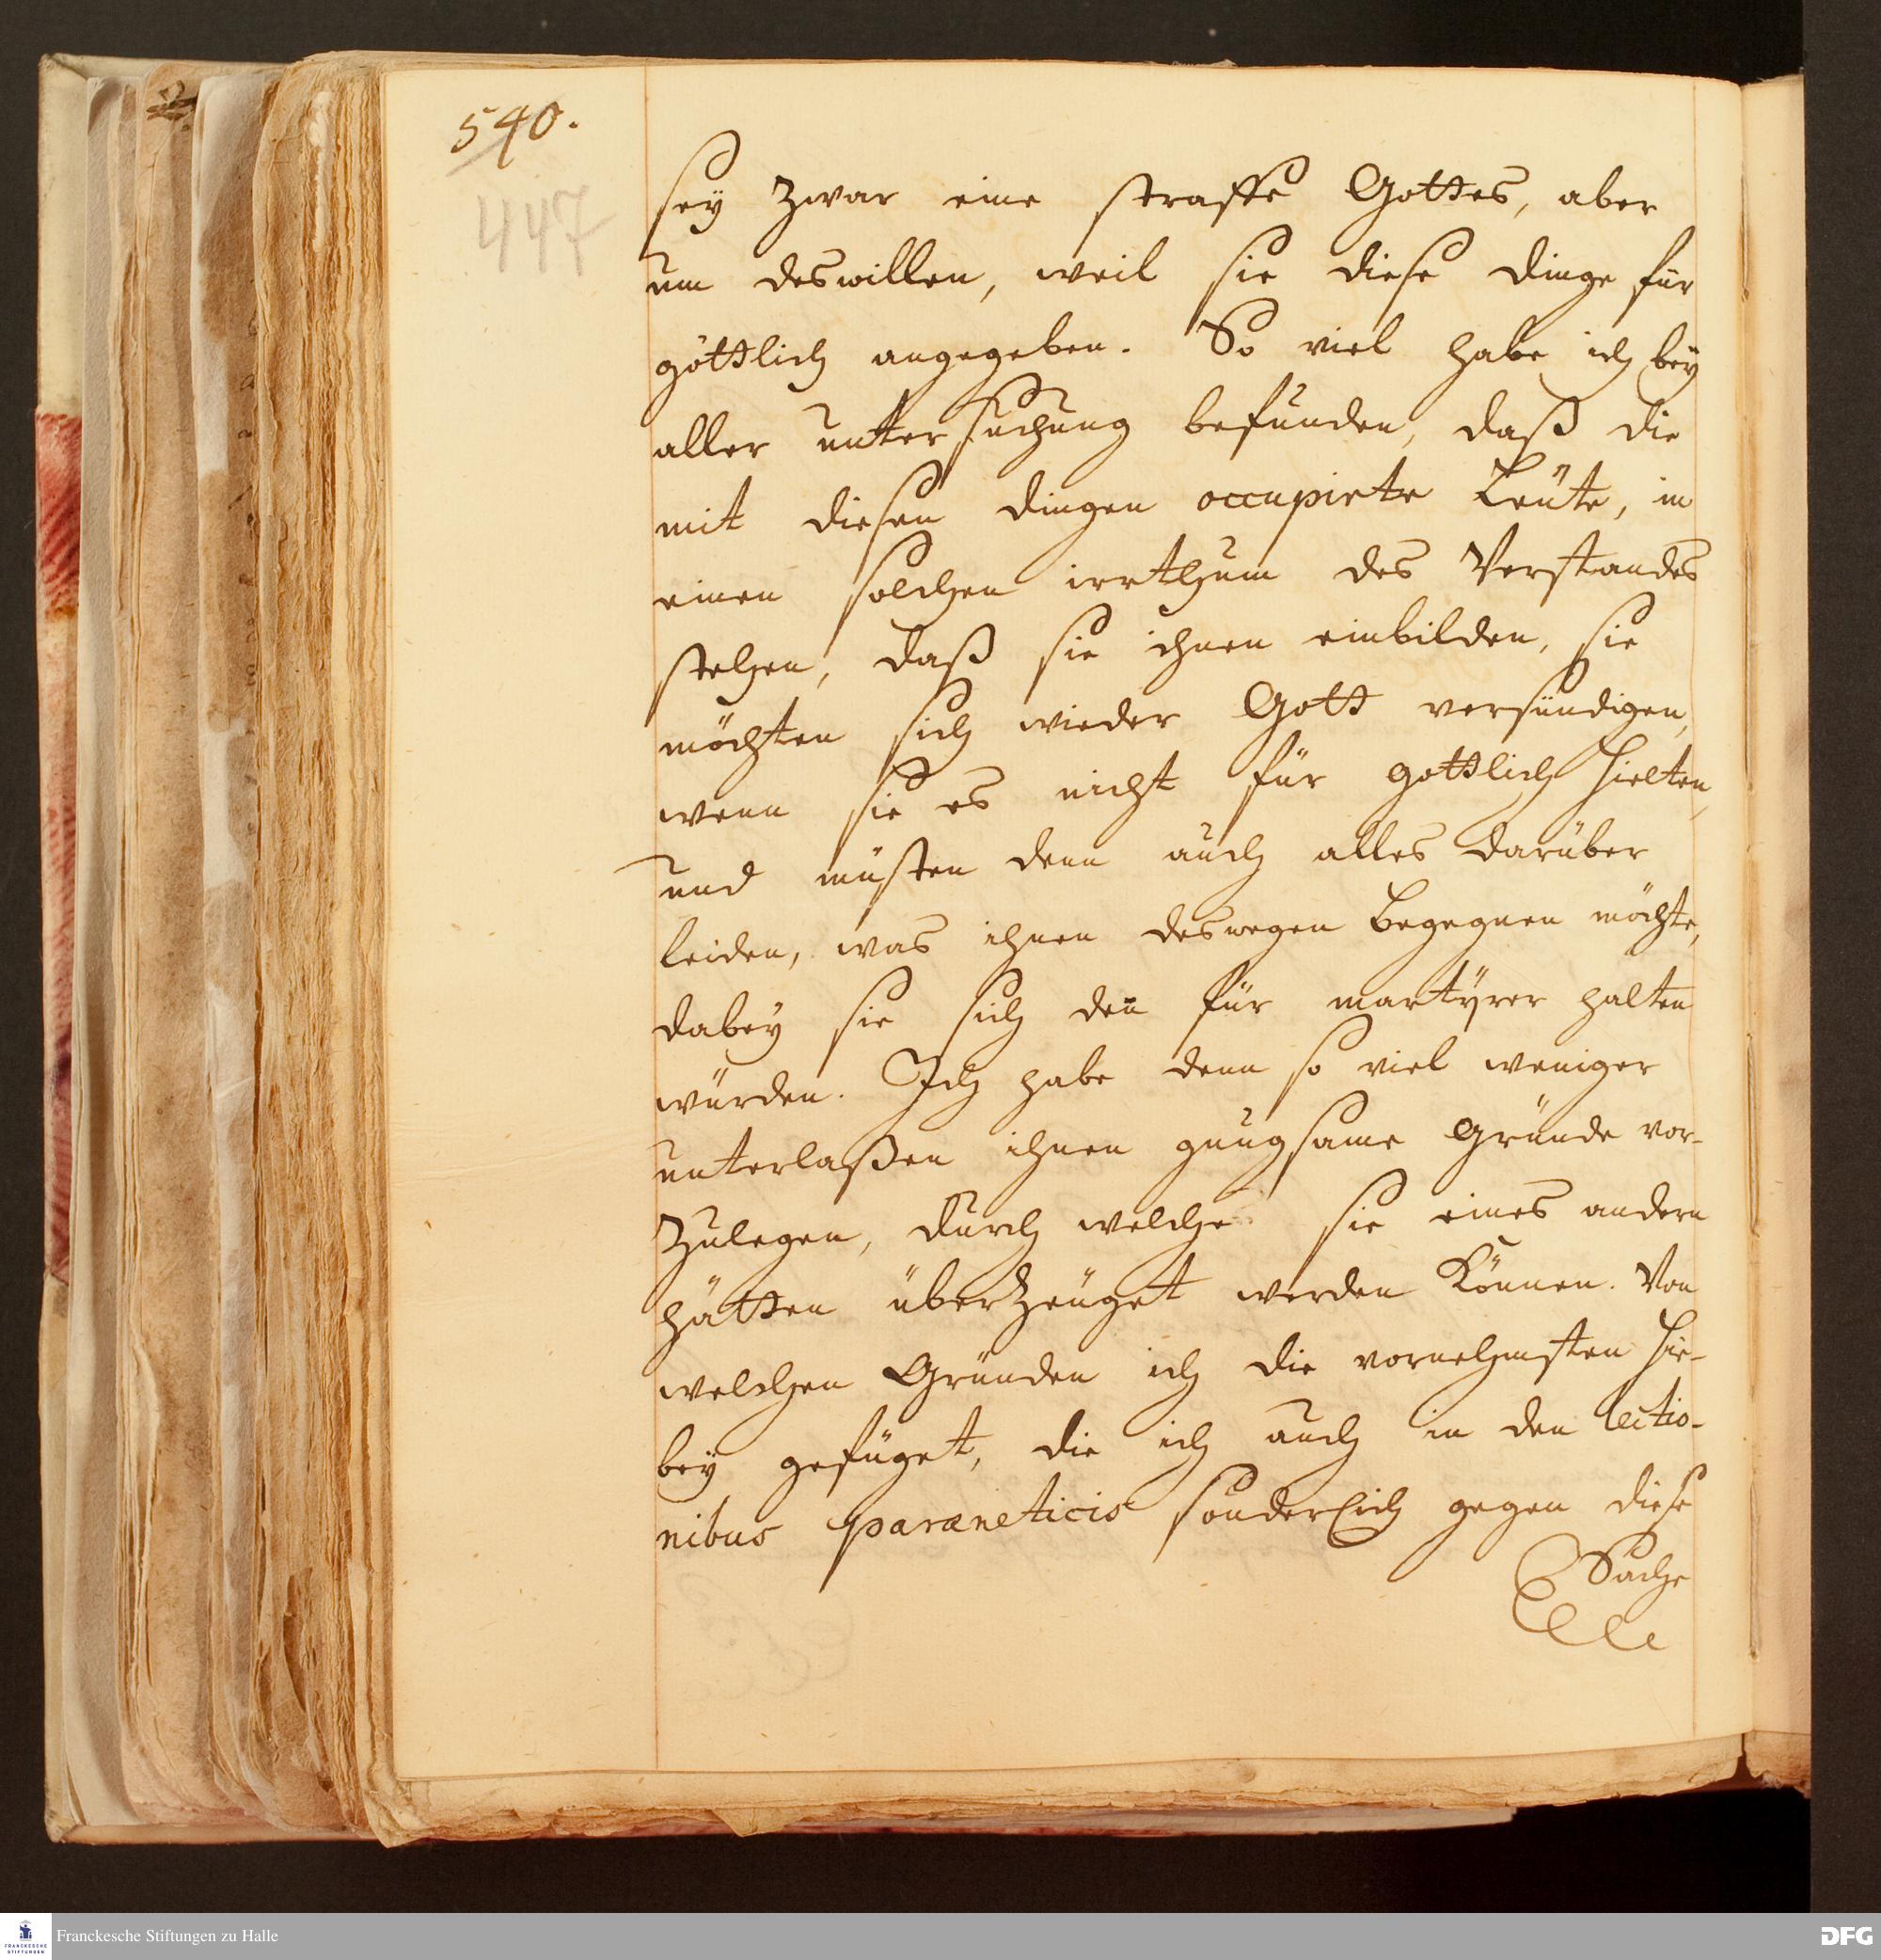 540.
447
seÿ zwar eine straffe Gottes, aber
um deswillen, weil sie diese dinge für
göttlich angegeben. So viel habe ich beÿ
aller untersuchung befunden, daß die
mit diesen dingen occupirte Leüte, in
einen solchen irrthum des Verstandes
stehen, daß sie ihnen einbilden, sie
möchten sich wieder Gott versündigen,
wenn sie es nicht für göttlich hielten,
und müsten denn auch alles darüber
leiden, was ihnen deswegen begegnen möchte,
dabeÿ sie sich deñ für martÿrer halten
würden. Ich habe denn so viel weniger
unterlaßen ihnen gnugsame Gründe vor-
zulegen, durch welche sie eines andern
hätten überzeüget werden können. Von
welchen Gründen ich die vornehmsten hie-
beÿ gefüget, die ich auch in den lectio-
nibus paræneticis sonderlich gegen diese
Sache
Franckesche Stiftungen zu Halle
FRANCKESCHE
STIFTUNGEN
DFG